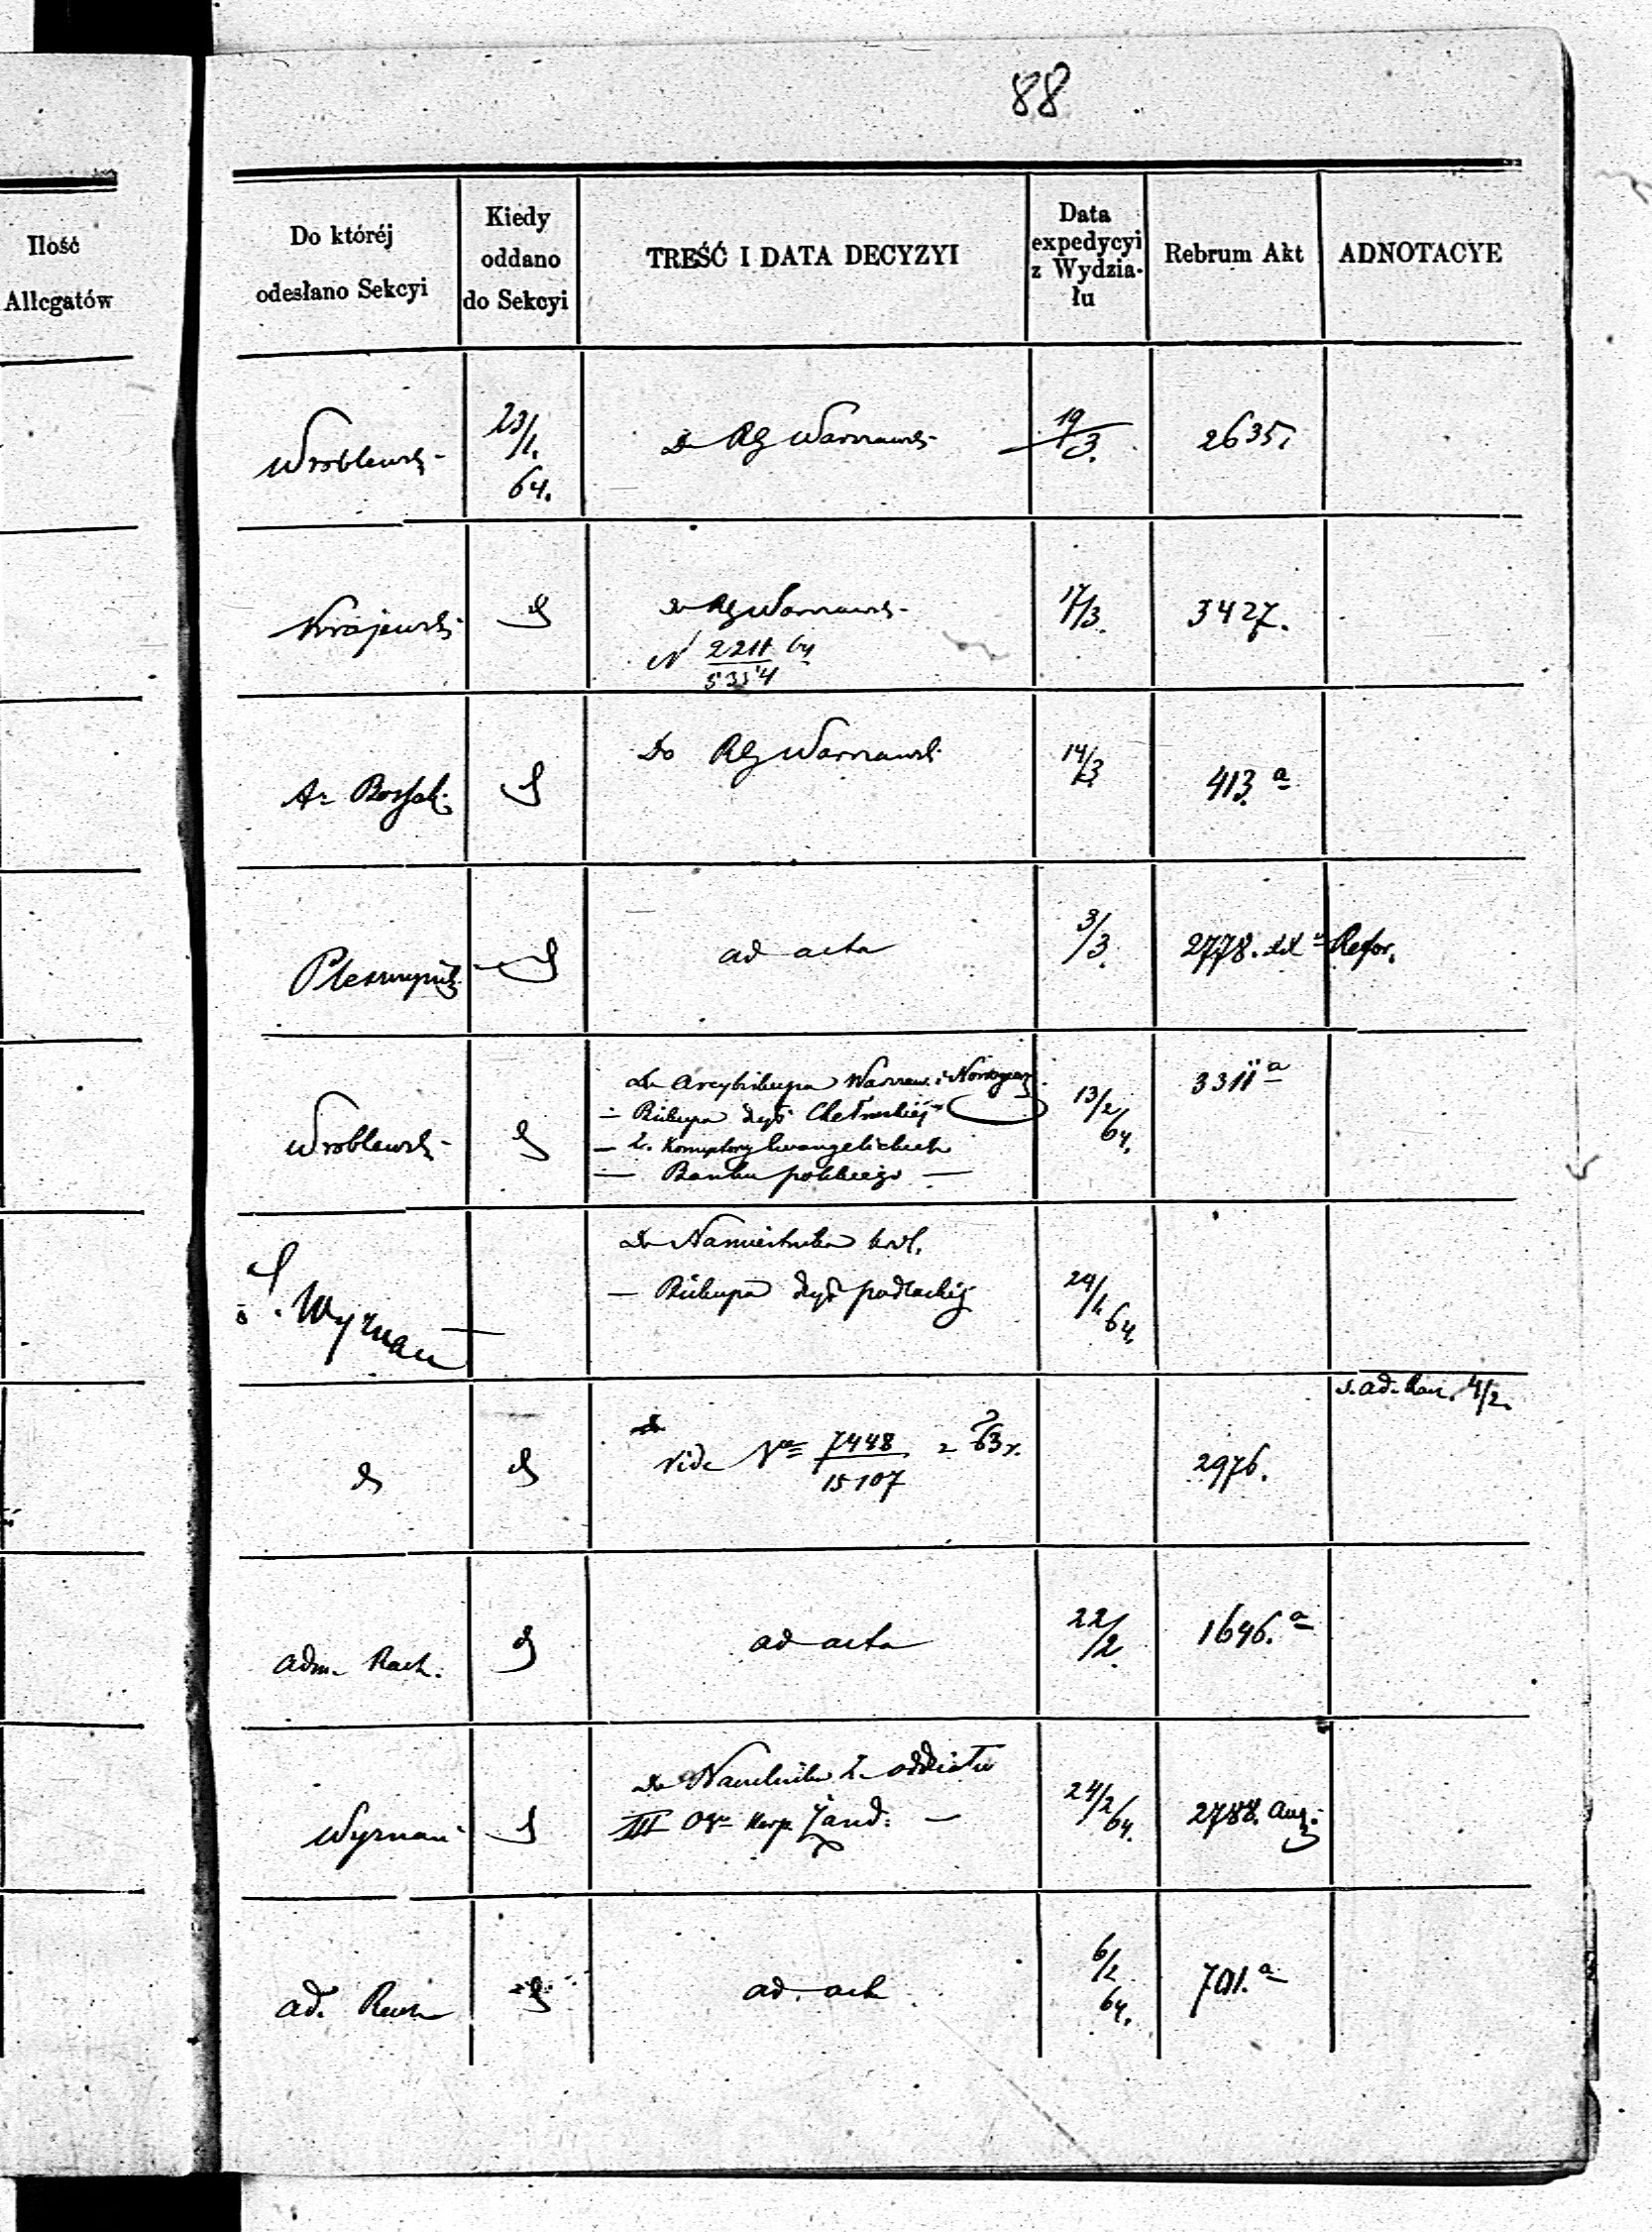 88
Ilość
Allegatów
Do któréj
odesłano Sekcyi
Kiedy
oddano
do Sekcyi
TREŚĆ I DATA DECYZYI
Data
expedycyi
z Wydzia-
łu
Rebrum Akt
ADNOTACYE
Wroblewsk-
23/1.
64.
Do RG Warszawsk-
19/3.
2635.
Krajewsk-
do RG Warszawsk-
N 2211 64
5354
17/3.
3427.
Do RG Warszawsk
14/3
413. a
ad acta
3/3.
2778. Refor.
Wroblewsk-
do Arcybiskupa Warszaw. i
- Biskupa dyj Chełmskiéj
- 2. Konsystorzy Ewangelickich
- Banku polskiego -
13/2
64.
3311 a
Wyznań
do Namiestnika Król.
- Biskupa dyj podlaskiéj
24/1 64
vide No 7448 z 63 r.
15107
2976.
4/2.
adm. Rach.
ad acta
22/2.
1646. a
Wyznań
do Naczelnika 2. oddziału
III Żand: -
24/2
64.
2788. Aug.
ad. Rach
ad. act
6/2
64.
701. a